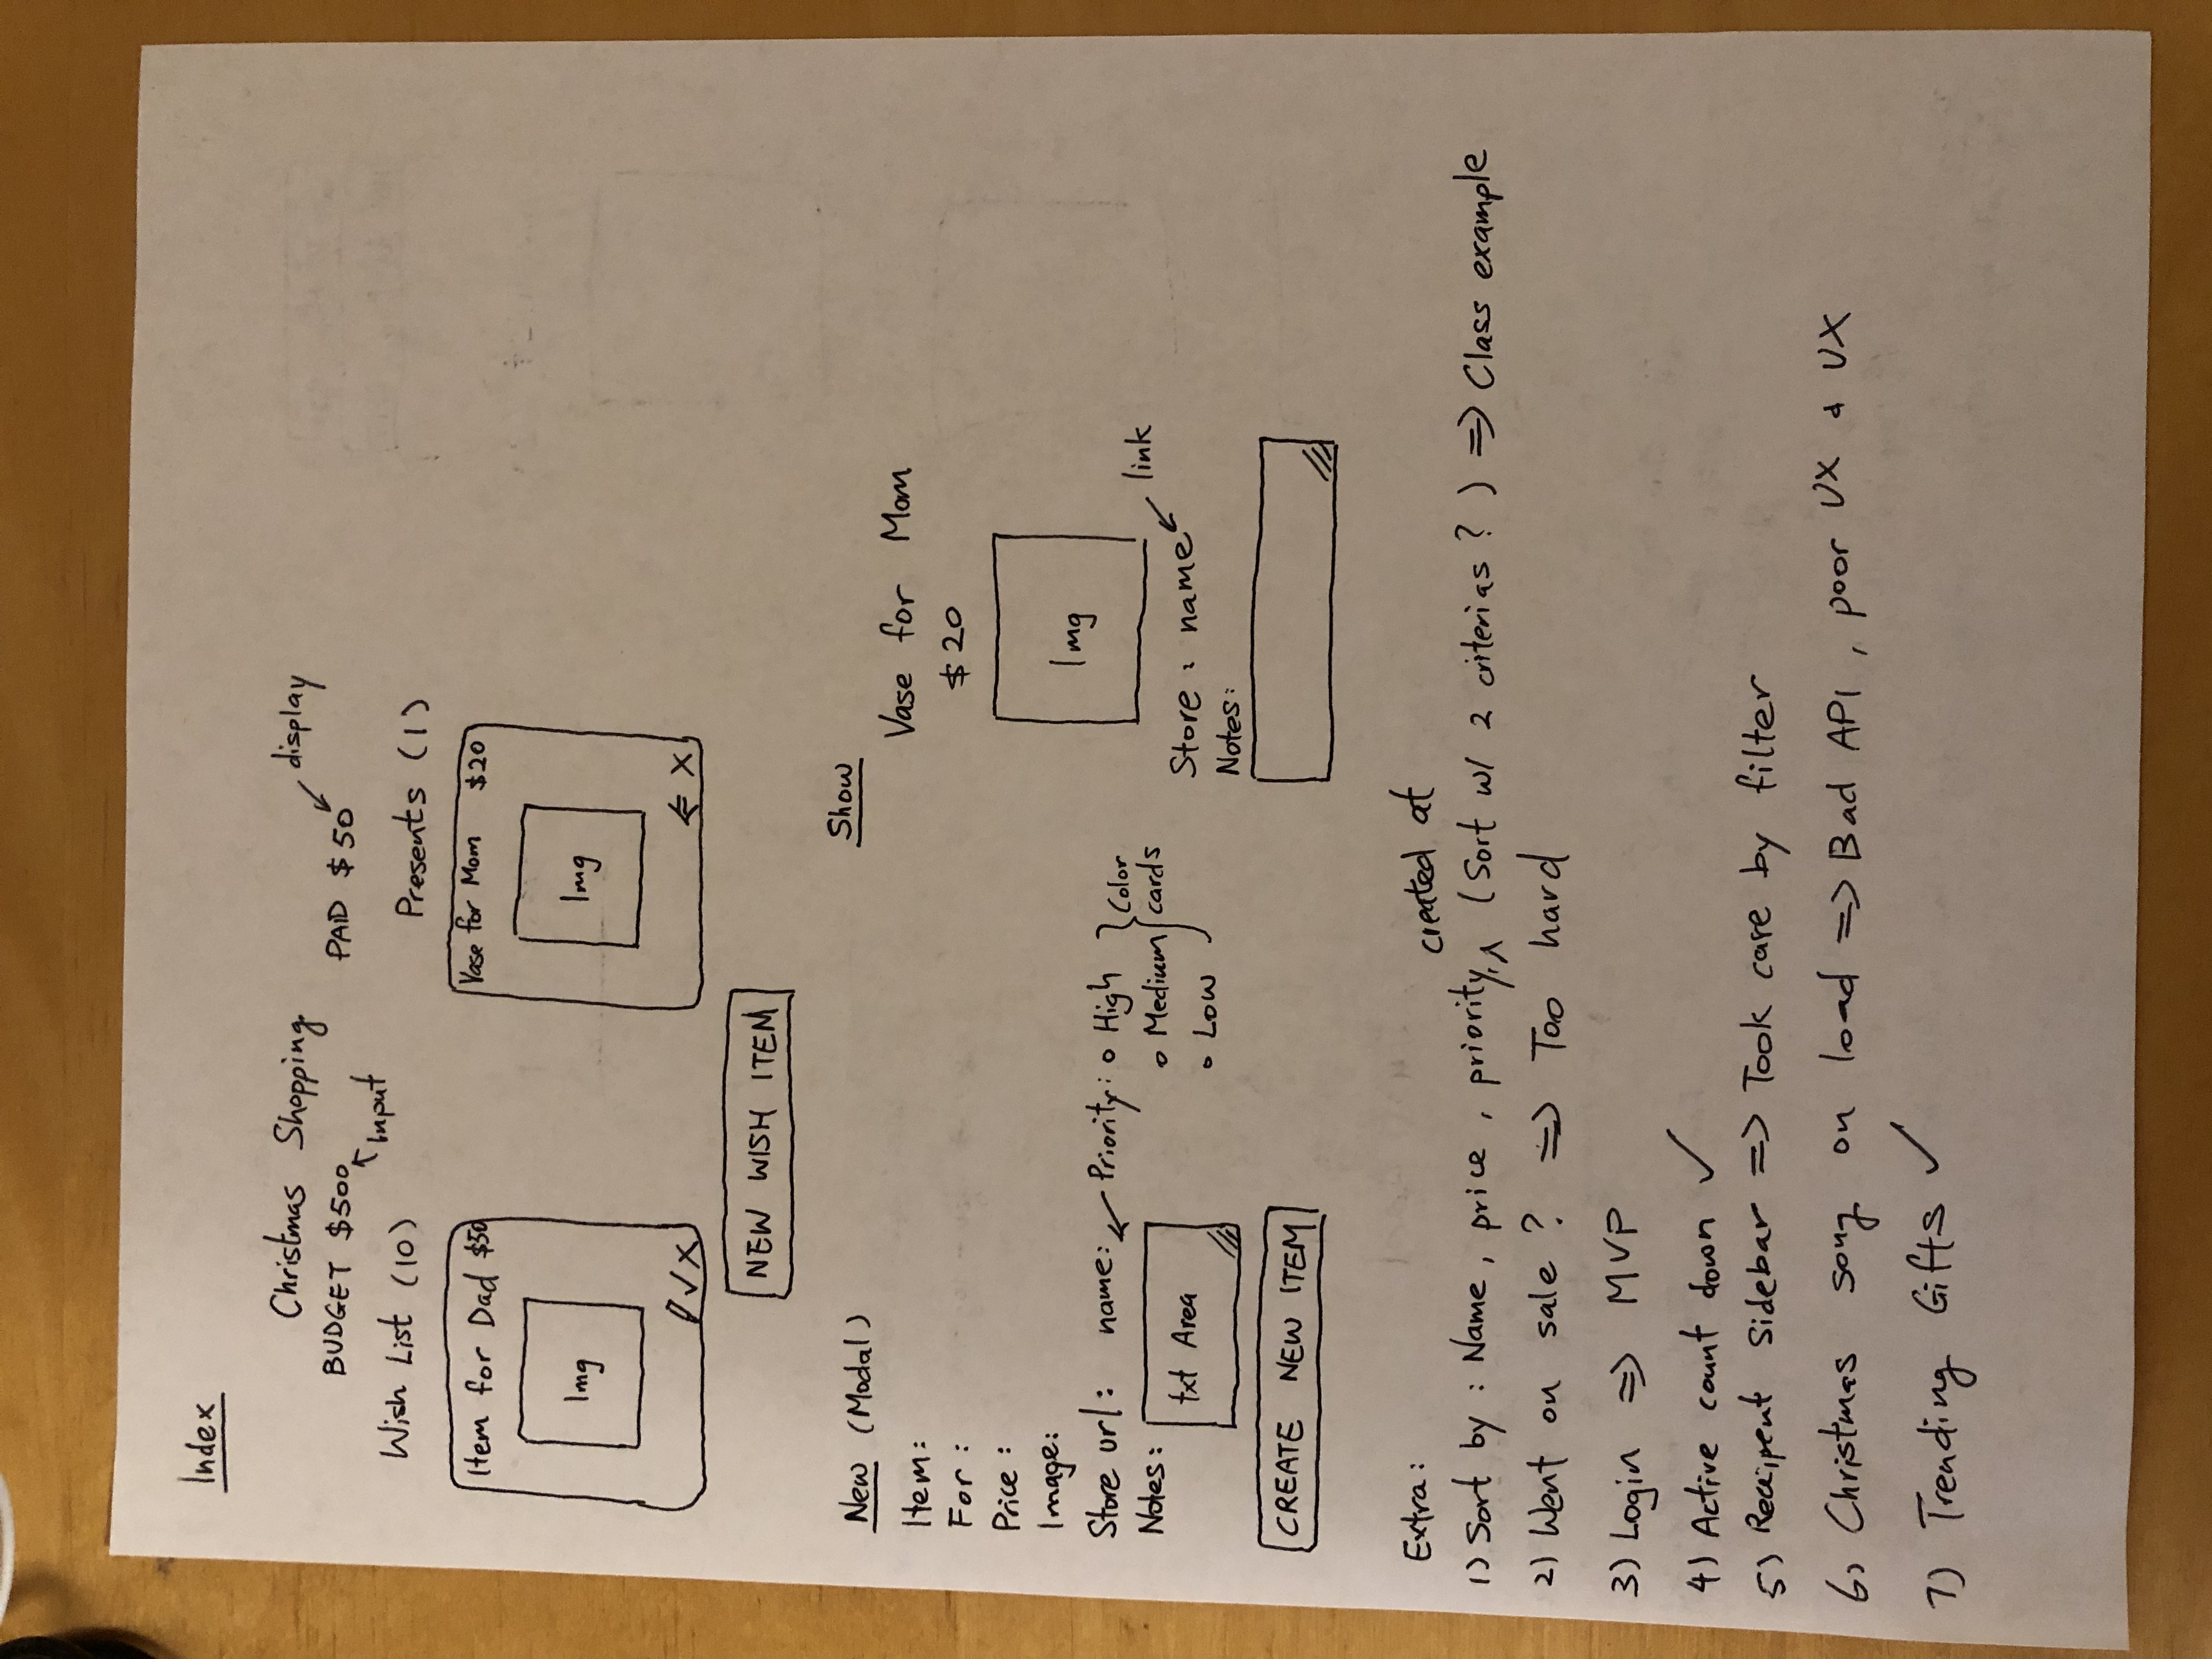 Index
Christmas Shopping
display
BUDGET $500
PAID $50
Input
Wish List (10)
Presents (1)
Item for Dad $50
Vase for Mom $20
Img
Img
✓ X
← X
NEW WISH ITEM
New (Modal)
Item:
For :
Price :
Image:
Store url: name:
Priority: o High
o Medium
o Low
Color
cards
Notes:
txt Area
CREATE NEW ITEM
Show
Vase for Mom
$20
Img
link
Store : name
Notes:
Extra:
created at
1) Sort by : Name, price, priority, ^ (Sort w/ 2 criterias ? ) => Class example
2) Went on sale ? => Too hard
3) Login => MVP
4) Active count down ✓
5) Receipent Sidebar => Took care by filter
6) Christmas song on load => Bad API, poor UX & UX
7) Trending Gifts ✓